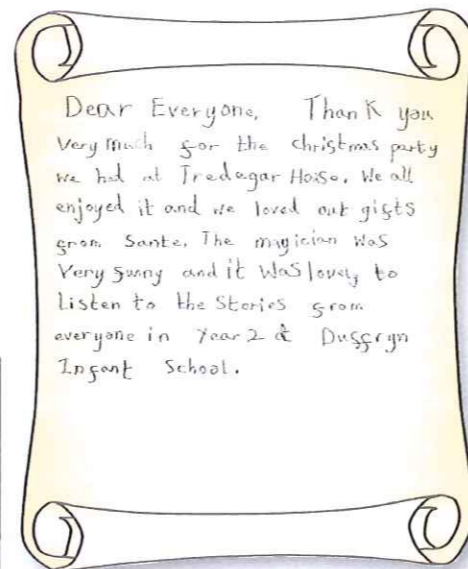 Dear Everyone, Thank you
Very much for the christmas party
we had at Tredegar House. We all
enjoyed it and we loved out gifts
from Sante. The magician was
Very funny and it was lovely to
Listen to the Stories from
everyone in Year 2 at Duffryn
Infant School.